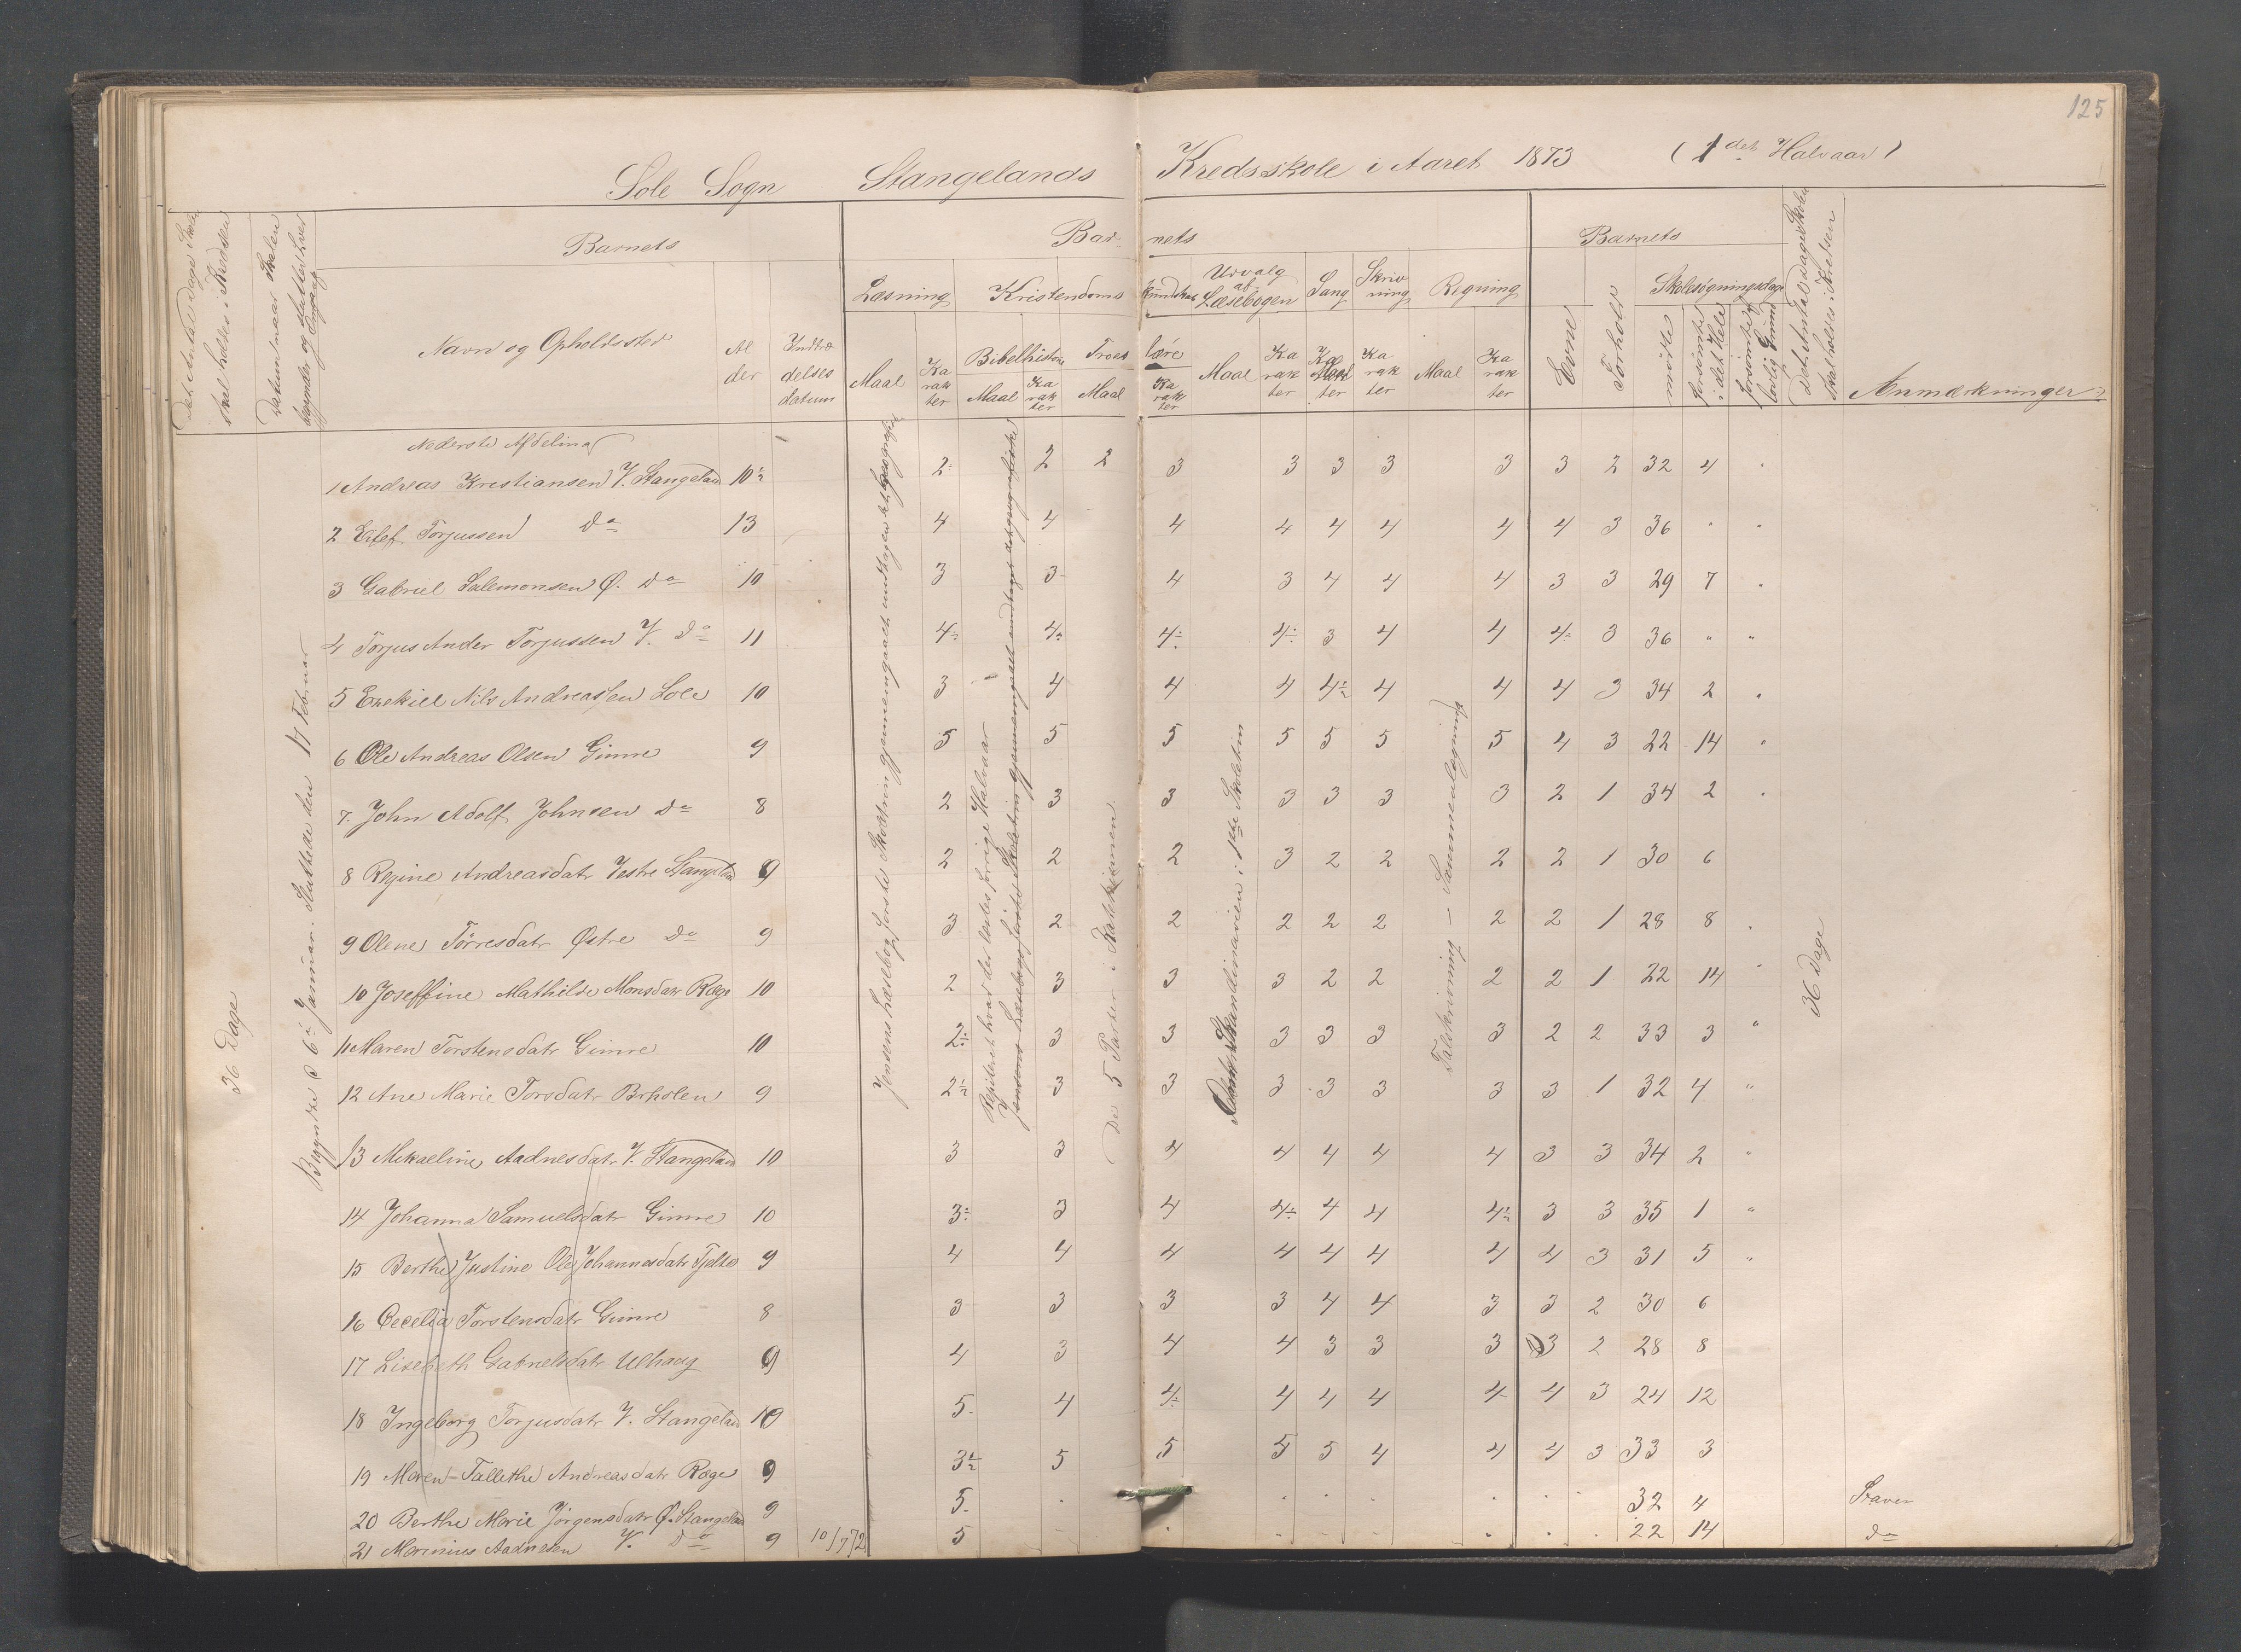 125
Sole Sogn Stangelands Kredsskole i Aaret 1873 (1det Halvaar)
Det Antal Dage Skole skal holdes i Kredsen
Datum naar Skolen begynder og slutter hver Omgang
Barnets
Navn og Opholdssted
Alder
Indtrædelsesdatum
Barnets
Læsning
Maal
Karakter
Kristendomskundskab
Bibelhistorie
Maal
Karakter
Troeslære
Maal
Karakter
Udvalg af Læsebogen
Maal
Karakter
Sang
Karakter
Skrivning
Karakter
Regning
Maal
Karakter
Barnets
Evne
Forhold
Skolesøgningsdage
mødte
forsømte i det Hele
forsømte af lovlig Grund
Det Antal Dage Skole skal holdes i Kredsen
Anmærkninger
36 Dage
Begyndte d 6te Januar. Sluttede den 17 Februar
Jensens Læsebog første Skoletrin gjennemgaaet undtagen
Repiteret hvad der læstes forrige Halvaar
De 5 Parter i Katekismen
Skandinavien i 1ste Skoletrin
Talskrivning – Sammenlegning
36 Dage
Nederste Afdeling
1 Andreas Kristiansen V. Stangeland 10½ 2 2 2 3 3 3 3 3 3 2 32 4 "
2 Eilef Torjussen do 13 4 4 4 4 4 4 4 4 3 36 " "
3 Gabriel Salemonsen Ø. do 10 3 3 4 3 4 4 4 3 3 29 7 "
4 Torjus Ander Torjussen V. do 11 4÷ 4½ 4÷ 4÷ 3 4 4 4÷ 3 36 " "
5 Ezekiel Nils Andreassen Sole 10 3 4 4 4 4½ 4 4 4 3 34 2 "
6 Ole Andreas Olsen Gimre 9 5 5 5 5 5 5 5 4 3 22 14 "
7. John Adolf Johnsen do 8 2 3 3 3 3 3 3 2 1 34 2 "
8 Regine Andreasdatr Vestre Stangeland 9 2 2 2 3 2 2 2 2 1 30 6
9 Olene Tørresdatr Østre do 9 3 2 2 2 2 2 2 2 1 28 8 "
10 Joseffine Mathilde Monsdatr Ræge 10 2 3 3 3 2 2 2 2 1 22 14 "
11 Maren Torstensdatr Gimre 10 2÷ 3 3 3 3 3 3 2 2 33 3 "
12 Ane Marie Torsdatr Brholen 9 2½ 3 3 3 3 3 3 3 1 32 4 "
13 Mikaeline Aadnesdatr V. Stangeland 10 3 3 4 4 4 4 4 3 3 34 2 "
14 Johanna Samuelsdatr Gimre 10 3÷ 3 4 4÷ 4 4 4½ 3 3 35 1 "
15 Berthe Justine Ole Johannesdatr Tjelte 9 4 4 4 4 4 4 4 4 3 31 5 "
16 Cecelia Torstensdatr Gimre 8 3 3 3 3 4 4 3 3 2 30 6
17 Lisebeth Gabrielsdatr Ulhaug 9 4 3 4 4 3 3 3 3 2 28 8
18 Ingeborg Torjusdatr V. Stangeland 10 5 4 4÷ 4 4 4 4 4 3 24 12
19 Maren Tallethe Andreasdatr Ræge 9 3½ 5 5 5 5 4 4 4 3 33 3
20 Berthe Marie Jörgensdatr Ø. Stangeland 9 5 " " " " " " " " 32 4 Staver
21 Marinius Aadnesen V. do 9 10/7 72 5 " " " " " " " " 22 14 do